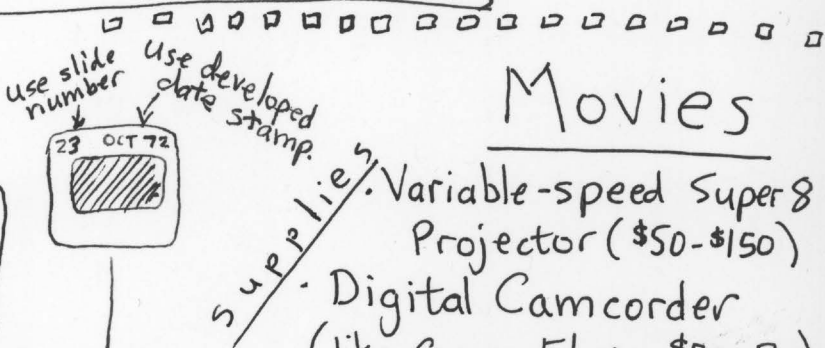 use slide
number
use developed
date stamp.
23 OCT 72
Supplies
Movies
. Variable-speed Super 8
Projector ($50-$150)
. Digital Camcorder